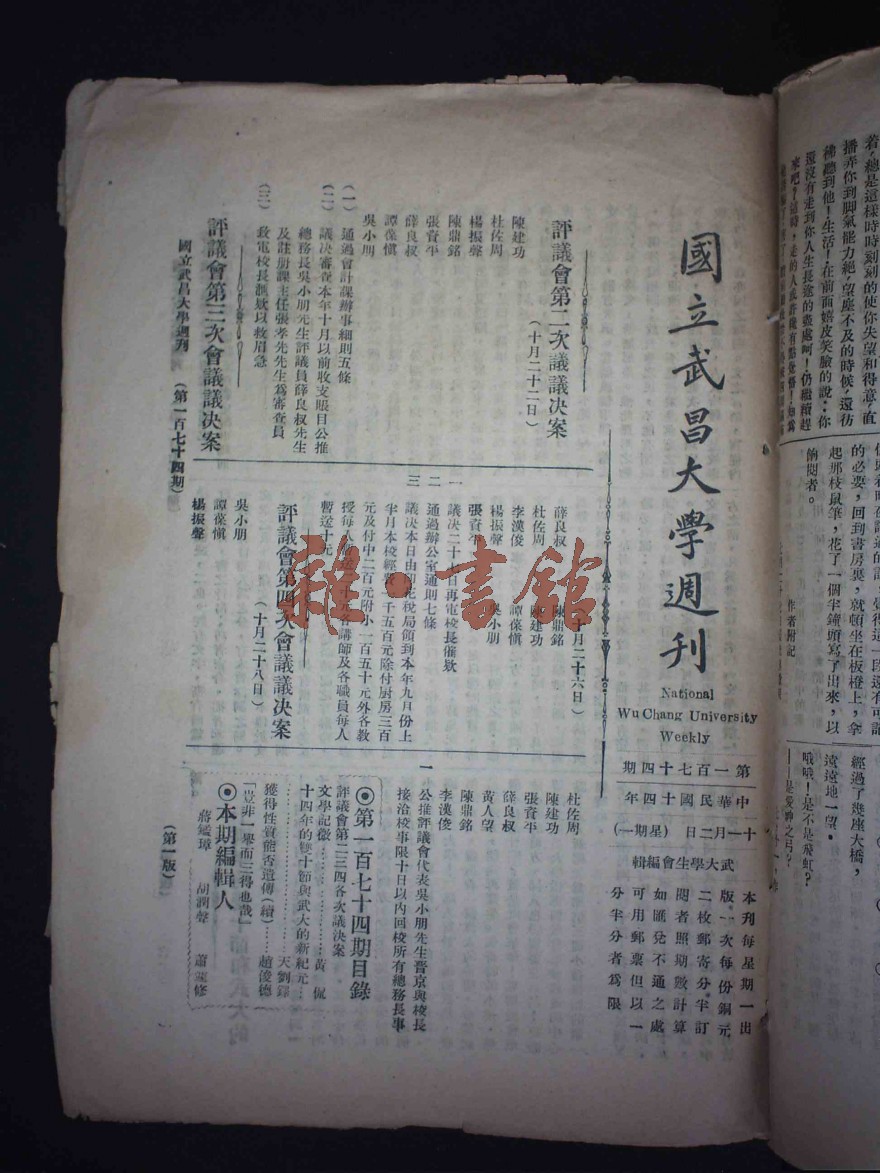 國立武昌大學週刊
National
Wu Chang University
Weekly
第一百七十四期
中華民國十四年
十一月二日(星期一)
武大學生會編輯
本刊每星期一出
版,一次每份銅元
二枚郵寄分半訂
閱者照期數計算
如匯兌不通之處
可用郵票但以一
分半分者為限
評議會第二次議議決案
(十月二十二日)
陳建功
杜佐周
楊振聲
陳鼎銘
張資平
薛良叔
譚葆慎
吳小朋
(一) 通過會計課辦事細則五條
(二) 議決審查本年十月以前收支賬目公推
總務長吳小朋先生評議員薛良叔先生
及註册課主任張孝先先生為審查員
(三) 致電校長匯欵以救眉急
評議會第三次會議議決案
(十月二十六日)
薛良叔 陳鼎銘
杜佐周 陳建功
李漢俊 譚葆慎
楊振聲 吳小朋
張資平
一 議決二十七日再電校長催欵
二 通過辦公室通則七條
三 議決本日由印花稅局領到本年九月份上
半月本校經費 千五百元除付厨房三百
元及付中二百元附小一百五十元外各教
授每人 十元各講師及各職員每人
暫送十元
評議會第四次會議議決案
(十月二十八日)
吳小朋
譚葆慎
楊振聲
杜佐周
陳建功
張資平
薛良叔
黃人望
陳鼎銘
李漢俊
一 公推評議會代表吳小朋先生晉京與校長
接洽校事限十日以內回校所有總務長事
◎第一百七十四期目錄
評議會第二三四各次議決案
文學記微……黃侃
十四年的雙十節與武大的新紀元……天劉鐸
獲得性質能否遺傳(續)……趙浚德
「豈非一舉而三得也哉」
◎本期編輯人
蔣鑑璋 胡潤聲 蕭 修
國立武昌大學週刊 (第一百七十四期)
(第一版)
雜·書館
着,總是這樣時時刻刻的使你失望和得意,直
播弄你到脚氣能力絕,望塵不及的時候,還彷
彿聽到他!生活!在前面嬉皮笑臉的說:你
還沒有走到你人生長途的盡處呵!仍繼續趕
的必要,回到書房裏,就頓坐在板櫈上,拿
起那枝鼠筆,花了一個半鐘頭寫了出來,以
餉閱者。
作者附記
經過了幾座大橋,
遠遠地一望。
哦哦!是不是飛虹?
——是愛神之弓?